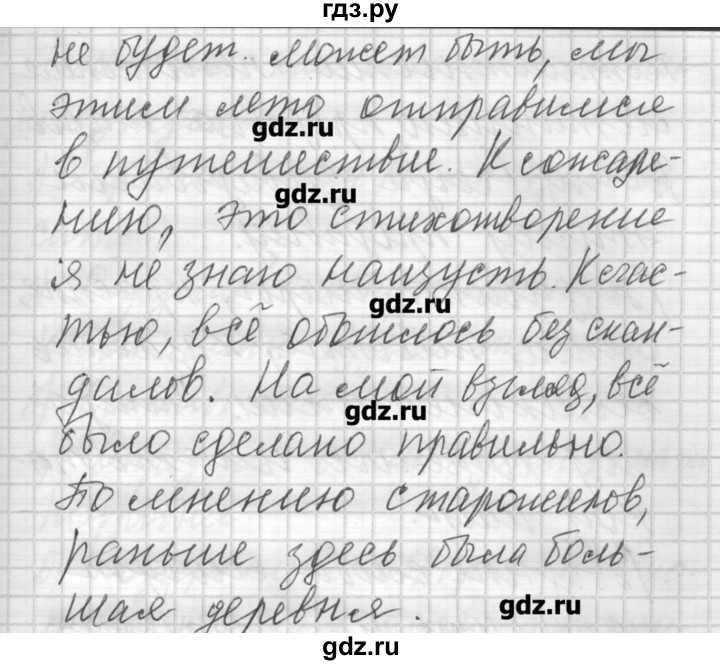 гдз.ру
не будет. может быть, мы
этим лето отправимся
gdz.ru
в путешествие. К сожале-
gdz.ru
нию, это стихотворение
я не знаю наизусть. К счас-
gdz.ru
тью, всё обошлось без скан-
далов. На мой взгляд, всё
gdz.ru
было сделано правильно.
По мнению старожилов,
раньше здесь была боль-
шая деревня.
gdz.ru
gdz.ru